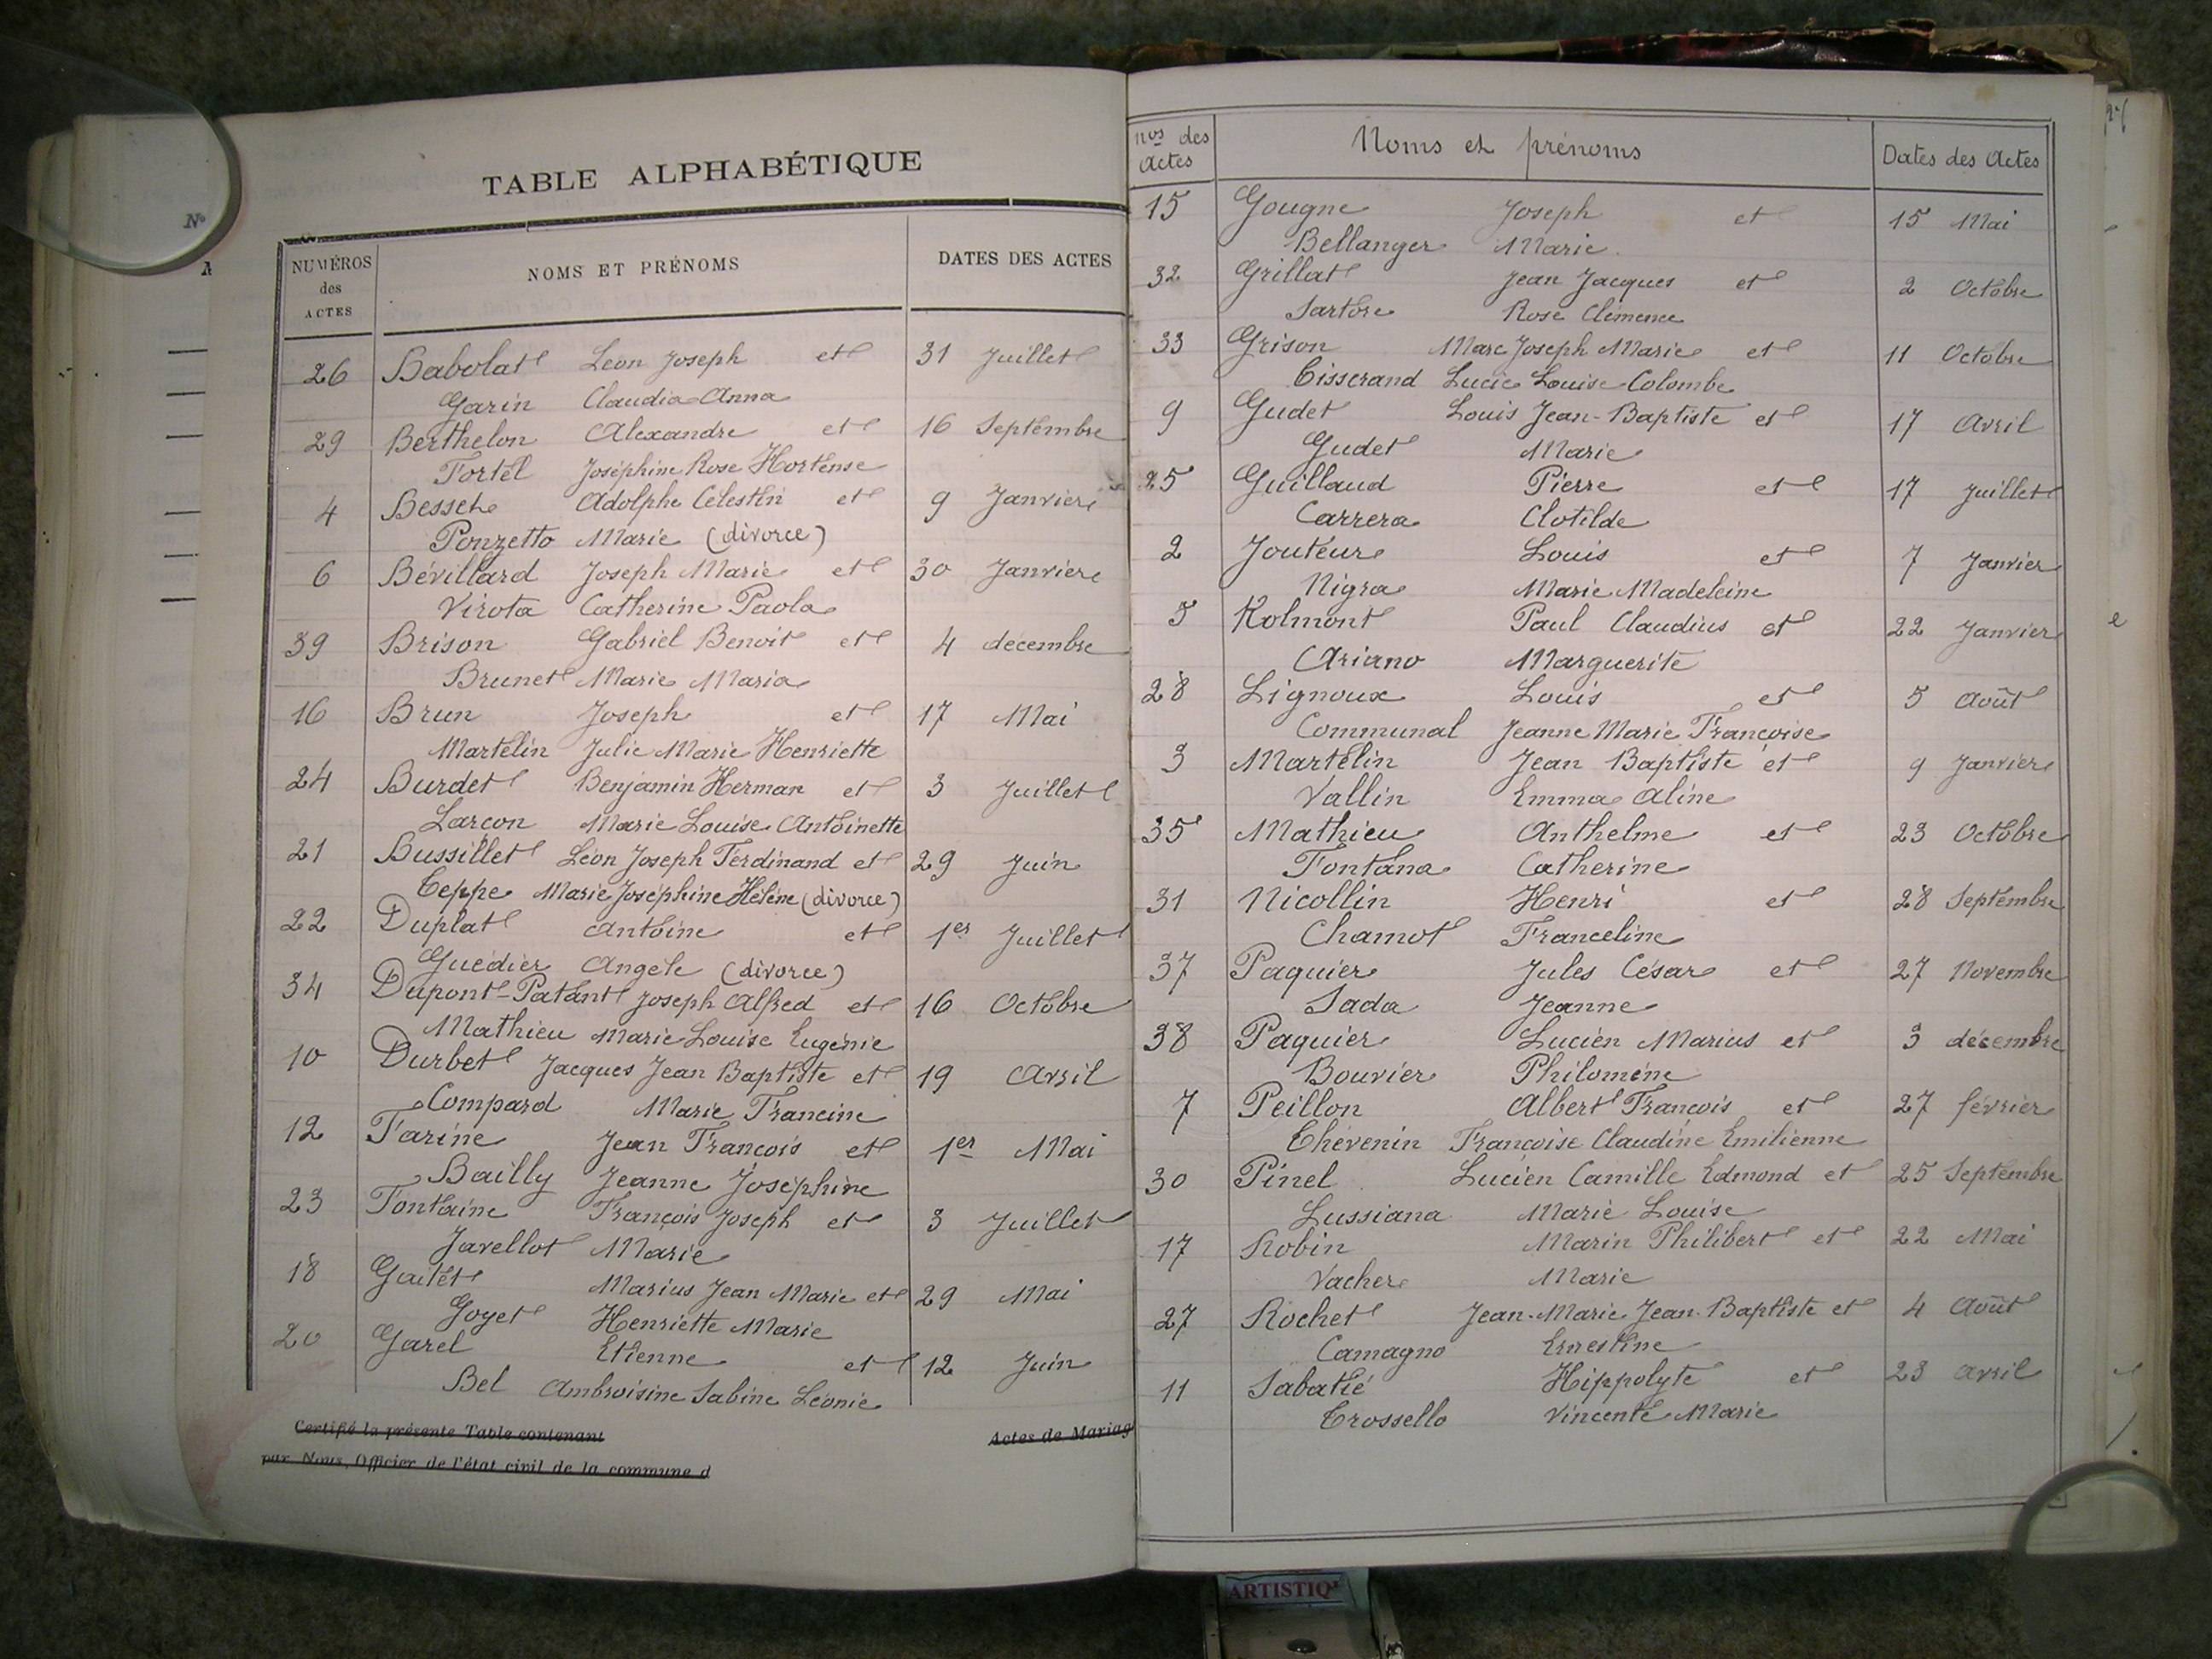 TABLE ALPHABÉTIQUE
NUMÉROS des ACTES NOMS ET PRÉNOMS DATES DES ACTES
26 Babolat Léon Joseph et 31 Juillet
Garin Claudia Anna
29 Berthelon Alexandre et 16 Septembre
Fortel Joséphine Rose Hortense
4 Besset Adolphe Célestin et 9 Janvier
Ponzetto Marie (divorce)
6 Bévillard Joseph Marie et 30 Janvier
Virota Catherine Paola
39 Brison Gabriel Benoit et 4 décembre
Brunet Marie Maria
16 Brun Joseph et 17 Mai
Martelin Julie Marie Henriette
24 Burdet Benjamin Herman et 3 Juillet
Larçon Marie Louise Antoinette
21 Bussillet Léon Joseph Ferdinand et 29 Juin
Ceppe Marie Joséphine Hélène (divorce)
22 Duplat Antoine et 1er Juillet
Guédier Angèle (divorce)
34 Dupont-Patant Joseph Alfred et 16 Octobre
Mathieu Marie Louise Eugénie
10 Durbet Jacques Jean Baptiste et 19 Avril
Compard Marie Francine
12 Farine Jean François et 1er Mai
Bailly Jeanne Joséphine
23 Fontaine François Joseph et 3 Juillet
Javellot Marie
18 Gaitet Marius Jean Marie et 29 Mai
Goyet Henriette Marie
20 Garel Etienne et 12 Juin
Bel Ambroisine Sabine Léonie
Certifié la présente Table contenant Actes de Mariag
par Nous, Officier de l'état civil de la commune d
nos des Actes Noms et prénoms Dates des Actes
15 Gougne Joseph et 15 Mai
Bellanger Marie
32 Grillat Jean Jacques et 2 Octobre
Sartore Rose Clémence
33 Grison Marc Joseph Marie et 11 Octobre
Tisserand Lucie Louise Colombe
9 Gudet Louis Jean-Baptiste et 17 Avril
Gudet Marie
25 Guillaud Pierre et 17 Juillet
Carrera Clotilde
2 Jouteur Louis et 7 Janvier
Nigra Marie Madeleine
5 Kolmont Paul Claudius et 22 Janvier
Ariano Marguerite
28 Lignoux Louis et 5 Août
Communal Jeanne Marie Françoise
3 Martelin Jean Baptiste et 9 Janvier
Vallin Emma Aline
35 Mathieu Anthelme et 23 Octobre
Fontana Catherine
31 Nicollin Henri et 28 Septembre
Chamot Franceline
37 Paquier Jules César et 27 Novembre
Sada Jeanne
38 Paquier Lucien Marius et 3 décembre
Bouvier Philomène
7 Peillon Albert François et 27 février
Thévenin Françoise Claudine Emilienne
30 Pinel Lucien Camille Edmond et 25 Septembre
Lussiana Marie Louise
17 Robin Marin Philibert et 22 Mai
Vacher Marie
27 Rochet Jean-Marie Jean-Baptiste et 4 Août
Camagno Ernestine
11 Sabatié Hippolyte et 23 avril
Trossello Vincente Marie
N°
ARTISTIQ